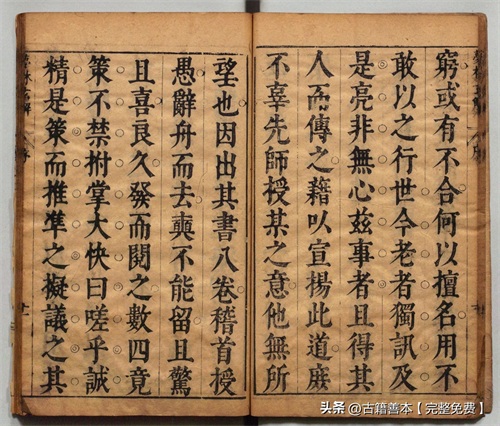 窮或有不合何以擅名用不
敢以之行世今老者獨訊及
是亮非無心兹事者且得其
人而傳之藉以宣揚此道庶
不辜先師授某之意他無所
朢也因出其書八卷稽首授
愚辭舟而去輿不能留且驚
且喜良久發而閱之數四竟
策不禁拊掌大快曰嗟乎誠
精是策而推凖之擬議之其
头条 @古籍善本【完整免费】